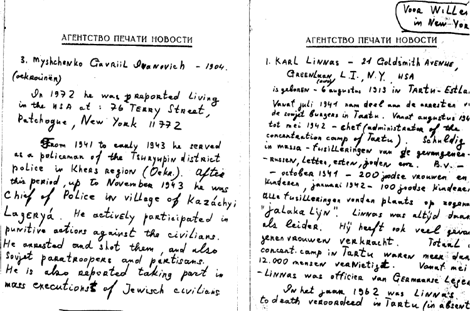 АГЕНТСТВО ПЕЧАТИ НОВОСТИ
3. Myshchenko Gavriil Ivanovich - 1904.
(oekrainën)
In 1972 he was reported living
in the USA at : 76 TERRY STREET,
Patchogue, NEW YORK 11772
From 1941 to early 1943 he served
as a policeman of the Tsuryupin district
police in Kherson region (Oeke). After
this period, up to November 1943 he was
Chief of Police in village of Kazáchyi
Lageryá. He actively participated in
punitive actions against the civilians.
He arrested and shot them and also
Sovjet paratroopers and partisans.
He is also reported taking part in
mass executions of Jewisch civilians
Voor Wille
in New York
АГЕНТСТВО ПЕЧАТИ НОВОСТИ
1. KARL LINNAS - 21 GOLDSMITH AVENUE,
GREENLAWN, L.I., N.Y. USA
is geboren - 6 augustus 1919 in TARTU-ESTLA
Vanaf juli 1941 nam deel aan de arresten v
de sovjet burgers in Tartu. Vanaf augustus 194
tot mei 1942 - chef (administrator of the
concentration camp of Tartu). Schuldig
in massa-fusilleringen van de gevangenen
- russen, letten, esten, joden enz. B.v. -
- october 1941 - 200 joodse vrouwen en
kinderen, januari 1942 - 100 joodse kinderen
Alle fusilleringen vonden plaats op zogenan
"Jalaka Lijn". Linnas was altijd daar
als leider. Hij heeft ook veel gevan
genen vrouwen verkracht. Totaal
concent. camp in TARTU waren meer dan
12.000 mensen vernietigd. Vanaf mei
- LINNAS was officier van Germaanse Leger
In het jaar 1962 was LINNAS
to death veroordeeld in Tartu (in absent